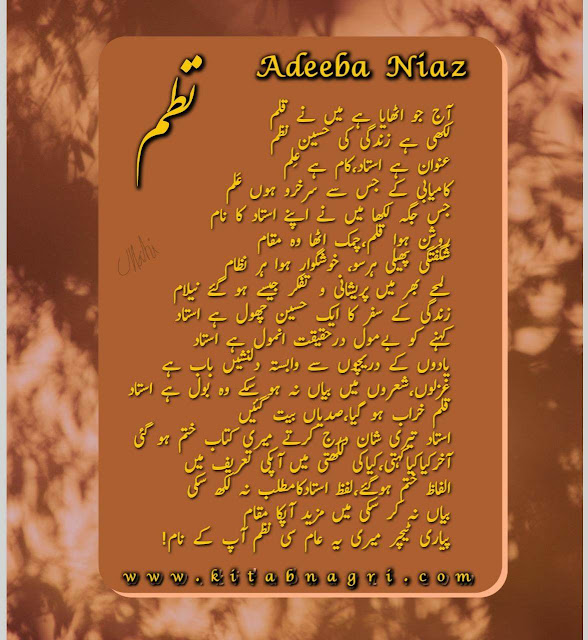 Adeeba Niaz
نظم
آج جو اٹھایا ہے میں نے قلم
لکھی ہے زندگی کی حسین نظم
عنوان ہے استاد،کام ہے عِلم
کامیابی کے جس سے سرخرو ہوں عَلم
جس جگہ لکھا میں نے اپنے استاد کا نام
روشن ہوا قلم،چمک اٹھا وہ مقام
شگفتگی پھیلی ہرسو، خوشگوار ہوا ہر نظام
لمحے بھر میں پریشانی و تفکر جیسے ہو گئے نیلام
زندگی کے سفر کا ایک حسین پھول ہے استاد
کہنے کو بےمول درحقیقت انمول ہے استاد
یادوں کے دریچوں سے وابستہ دلنشیں باب ہے
غزلوں،شعروں میں بیاں نہ ہو سکے وہ بول ہے استاد
قلم خراب ہو گیا،صدیاں بیت گئیں
استاد تیری شان درج کرتے میری کتاب ختم ہو گئی
آخرکیاکیاکہتی،کیاکی لکھتی میں آپکی تعریف میں
الفاظ ختم ہوگئے،لفظ استادکامطلب نہ لکھ سکی
بیاں نہ کر سکی میں مزید آپکا مقام
پیاری ٹیچر میری یہ عام سی نظم آپ کے نام!
www.kitabnagri.com